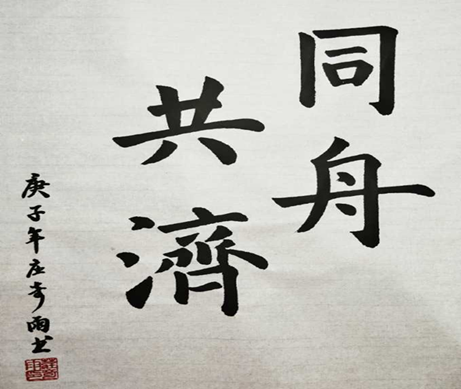 同舟
共濟
庚子年庄奇雨書